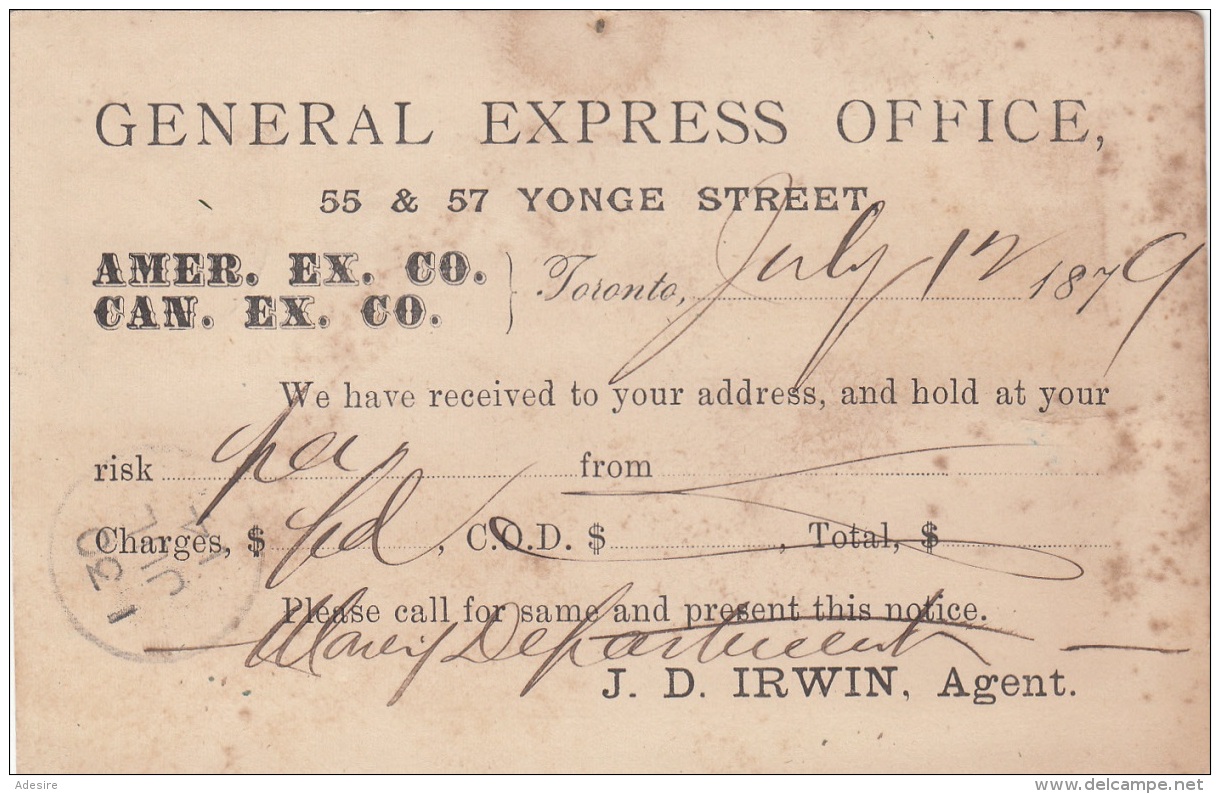 GENERAL EXPRESS OFFICE,
55 & 57 YONGE STREET,
AMER. EX. CO.
CAN. EX. CO.
Toronto, July 12 1879
We have received to your address, and hold at your
risk from
Charges, $ Pd, C.O.D. $ , Total, $
Please call for same and present this notice.
Money Department
J. D. IRWIN, Agent.
1 30
JUL
12
Adesire
www.delcampe.net